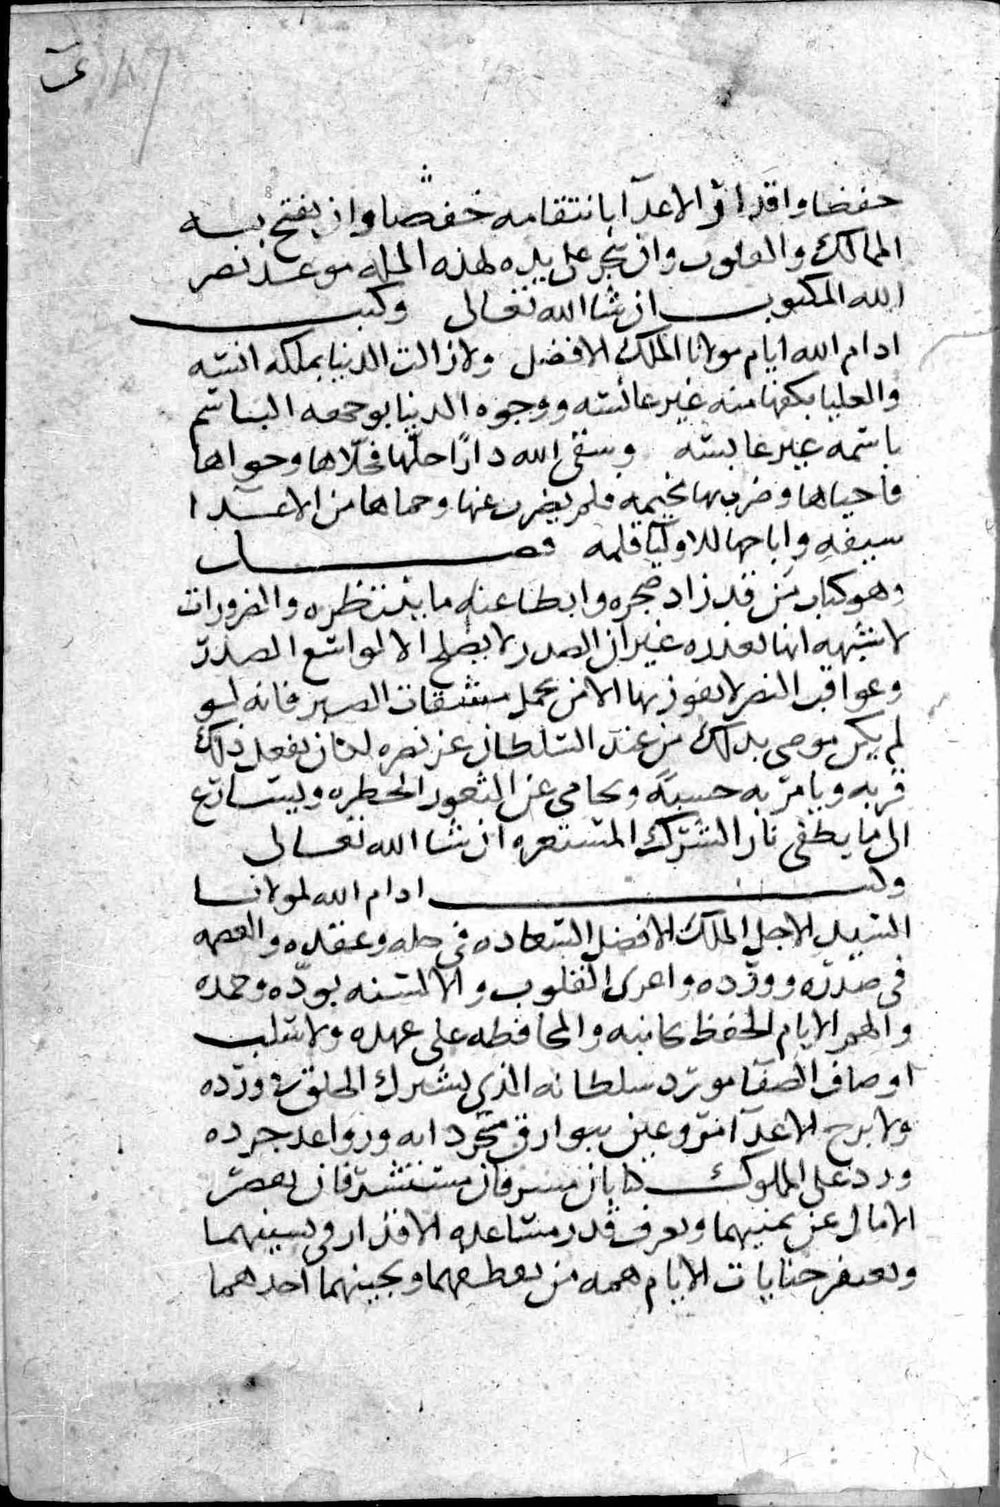 خفضا واقدار الاعدآ بانتقامه خفضا وان يفتح به
الممالك والقلوب وان يجرى على يده لهذه المله موعد نصر
الله المكتوب ان شا الله تعالى وكتب
ادام الله ايام مولانا الملك الافضل ولا زالت الدنيا بملكه انسته
والعليا بكفها منه غير عائسته ووجوه الدنيا بوجهه البسا تم
باسمه غير عابسته وسقى الله دارًا حلّها فحلّاها وحواها
فاحياها وضرب بها نخيمه فلم يضرب عنها وحماها من الاعدآ
بسيفه واباحها للاوليآ قلمه فصل
وهو كتاب من قد زاد ضجره وابطا عنه ما ينتظره والضرورات
لا تشبهه انها تعذره غير ان الصدر لا يصلح الا لواسع الصدر
وعواقب النصر لا يفوز بها الا من تحمل مشقات الصبر فانه لو
لم يكن موصى بذلك من عند السلطان عز نصره لكان يفعل ذلك
قربه ويامر به حسبةً ويحامى عن الثغور الخطره ويسارع
الى ما يطفى نار الشرك المستعره ان شا الله تعالى
وكتب ادام الله لمولانا
السيد الاجل الملك الافضل السعاده فى حله وعقده والعصمه
فى صدره وورده واغرى القلوب والالسنه بودّه وحمده
والهم الايام الحفظ لجانبه والمحافظه على عهده ولا سلب
اوصاف الصفا مورد سلطانه الذى يشترك الخلق فى ورده
ولا برح الاعدآ مروعين ببوارق مجرداته ورواعد جرده
ورد على المملوك كتابان مشرفان مستشرفان يقصر
الامال عن تمنيهما ويعرف قدر مساعده الاقدار فى
ويغتفر جنايات الايام همه من احدهما